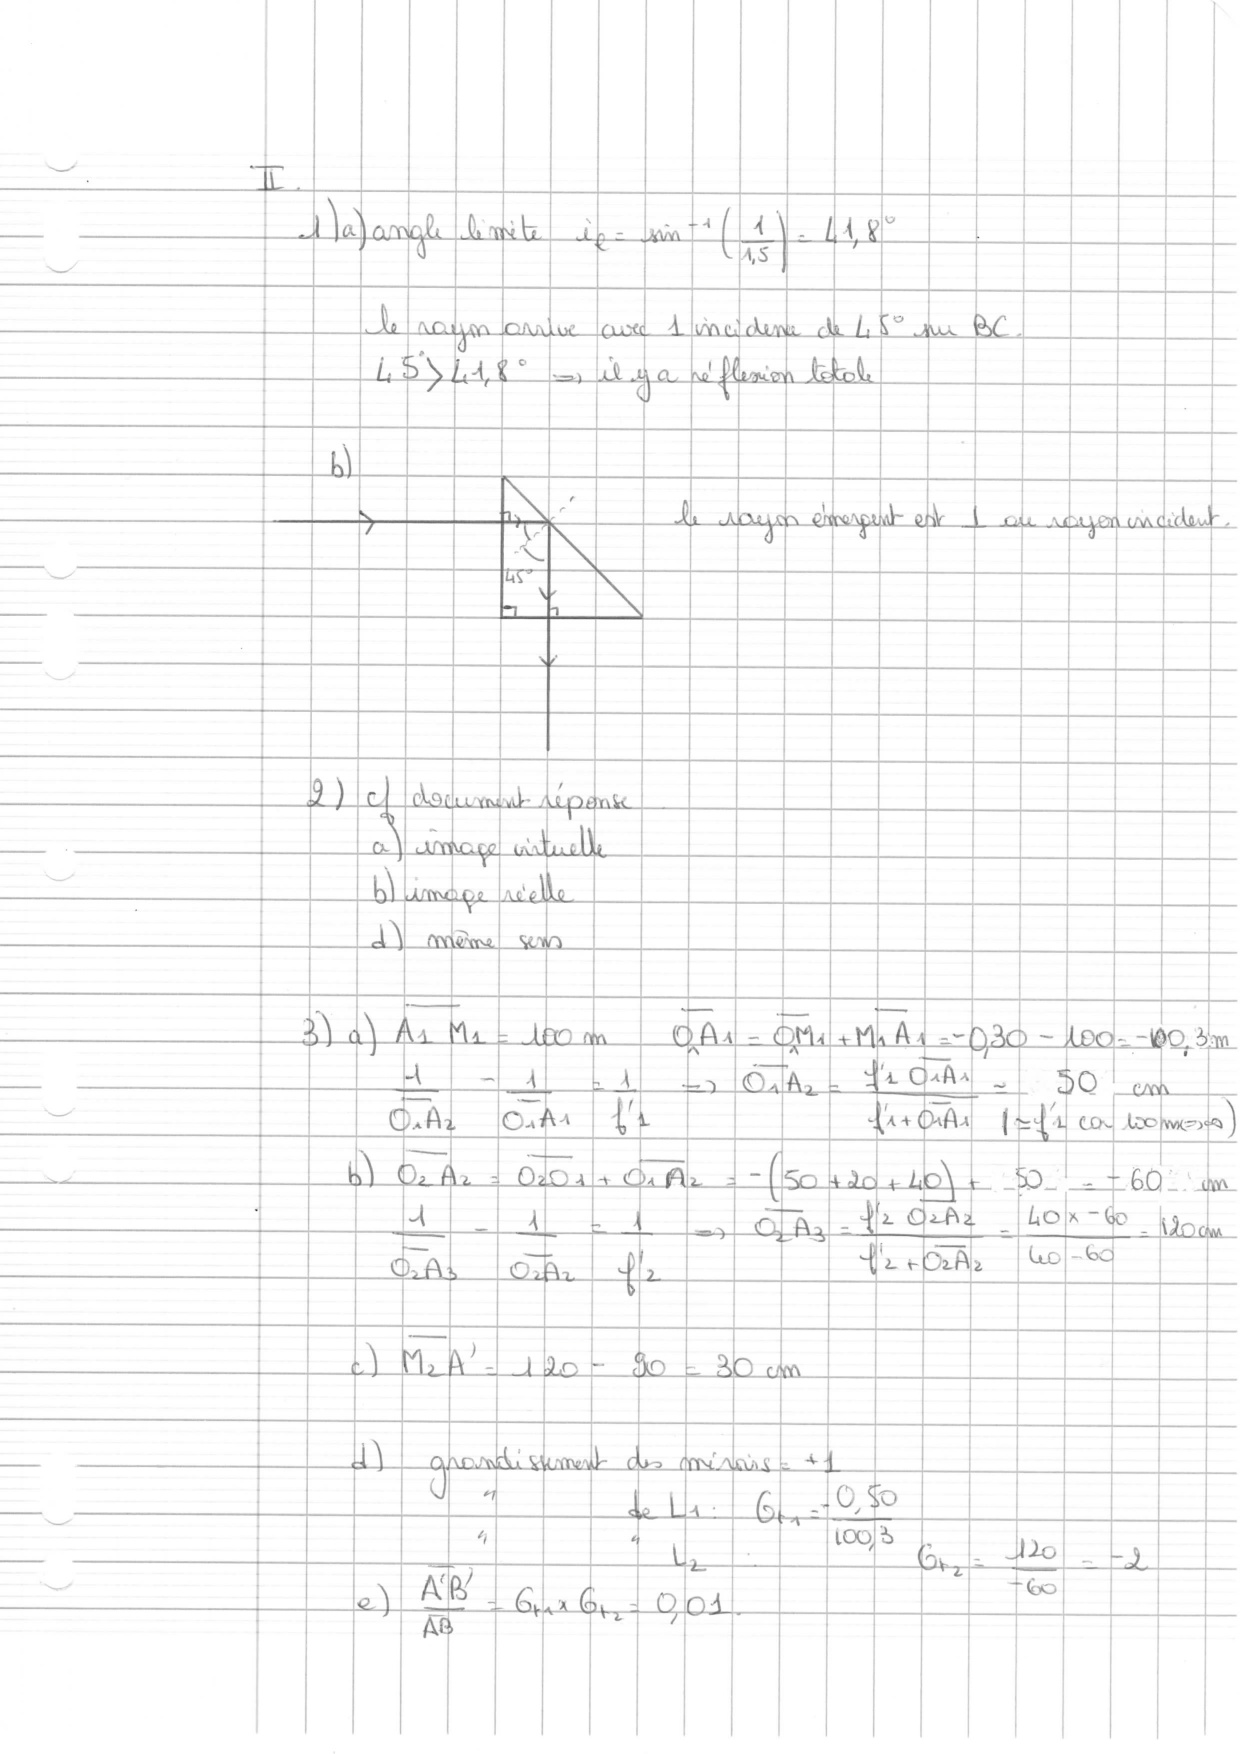 II.
1) a) angle limite iℓ = sin⁻¹ (1/1,5) = 41,8°
le rayon arrive avec 1 incidence de 45° sur BC.
45° > 41,8° => il y a réflexion totale
b)
le rayon émergent est ⊥ au rayon incident.
45°
2) cf document réponse
a) image virtuelle
b) image réelle
d) même sens
3) a) A₁M₁ = 100 m O₁A₁ = O₁M₁ + M₁A₁ = -0,30 - 100 = -100,3 m
1/O₁A₂ - 1/O₁A₁ = 1/f'1 => O₁A₂ = f'1 O₁A₁ / f'1 + O₁A₁ = 50 cm
(≈ f'1 car 100 m => ∞)
b) O₂A₂ = O₂O₁ + O₁A₂ = -(50 + 20 + 40) + 50 = -60 cm
1/O₂A₃ - 1/O₂A₂ = 1/f'2 => O₂A₃ = f'2 O₂A₂ / f'2 + O₂A₂ = 40 x -60 / 40 - 60 = 120 cm
c) M₂A' = 120 - 90 = 30 cm
d) grandissement des miroirs = +1
" de L₁ : Gt₁ = -0,50/100,3
" " L₂ Gt₂ = 120/-60 = -2
e) A'B'/AB = Gt₁ x Gt₂ = 0,01.